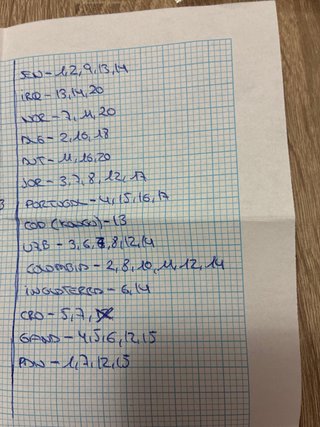 SEN - 1,2,9,13,14
IRQ - 13,14,20
NOR - 7,11,20
ALG - 2,16,18
AUT - 11,16,20
JOR - 3,7,8,12,17
PORTUGAL - 4,15,16,17
COD (KONGO) - 13
UZB - 3,6,8,12,14
COLOMBIA - 2,8,10,11,12,14
INGLATERRA - 6,14
CRO - 5,7,
GANA - 4,5,6,12,15
PAN - 1,7,12,15